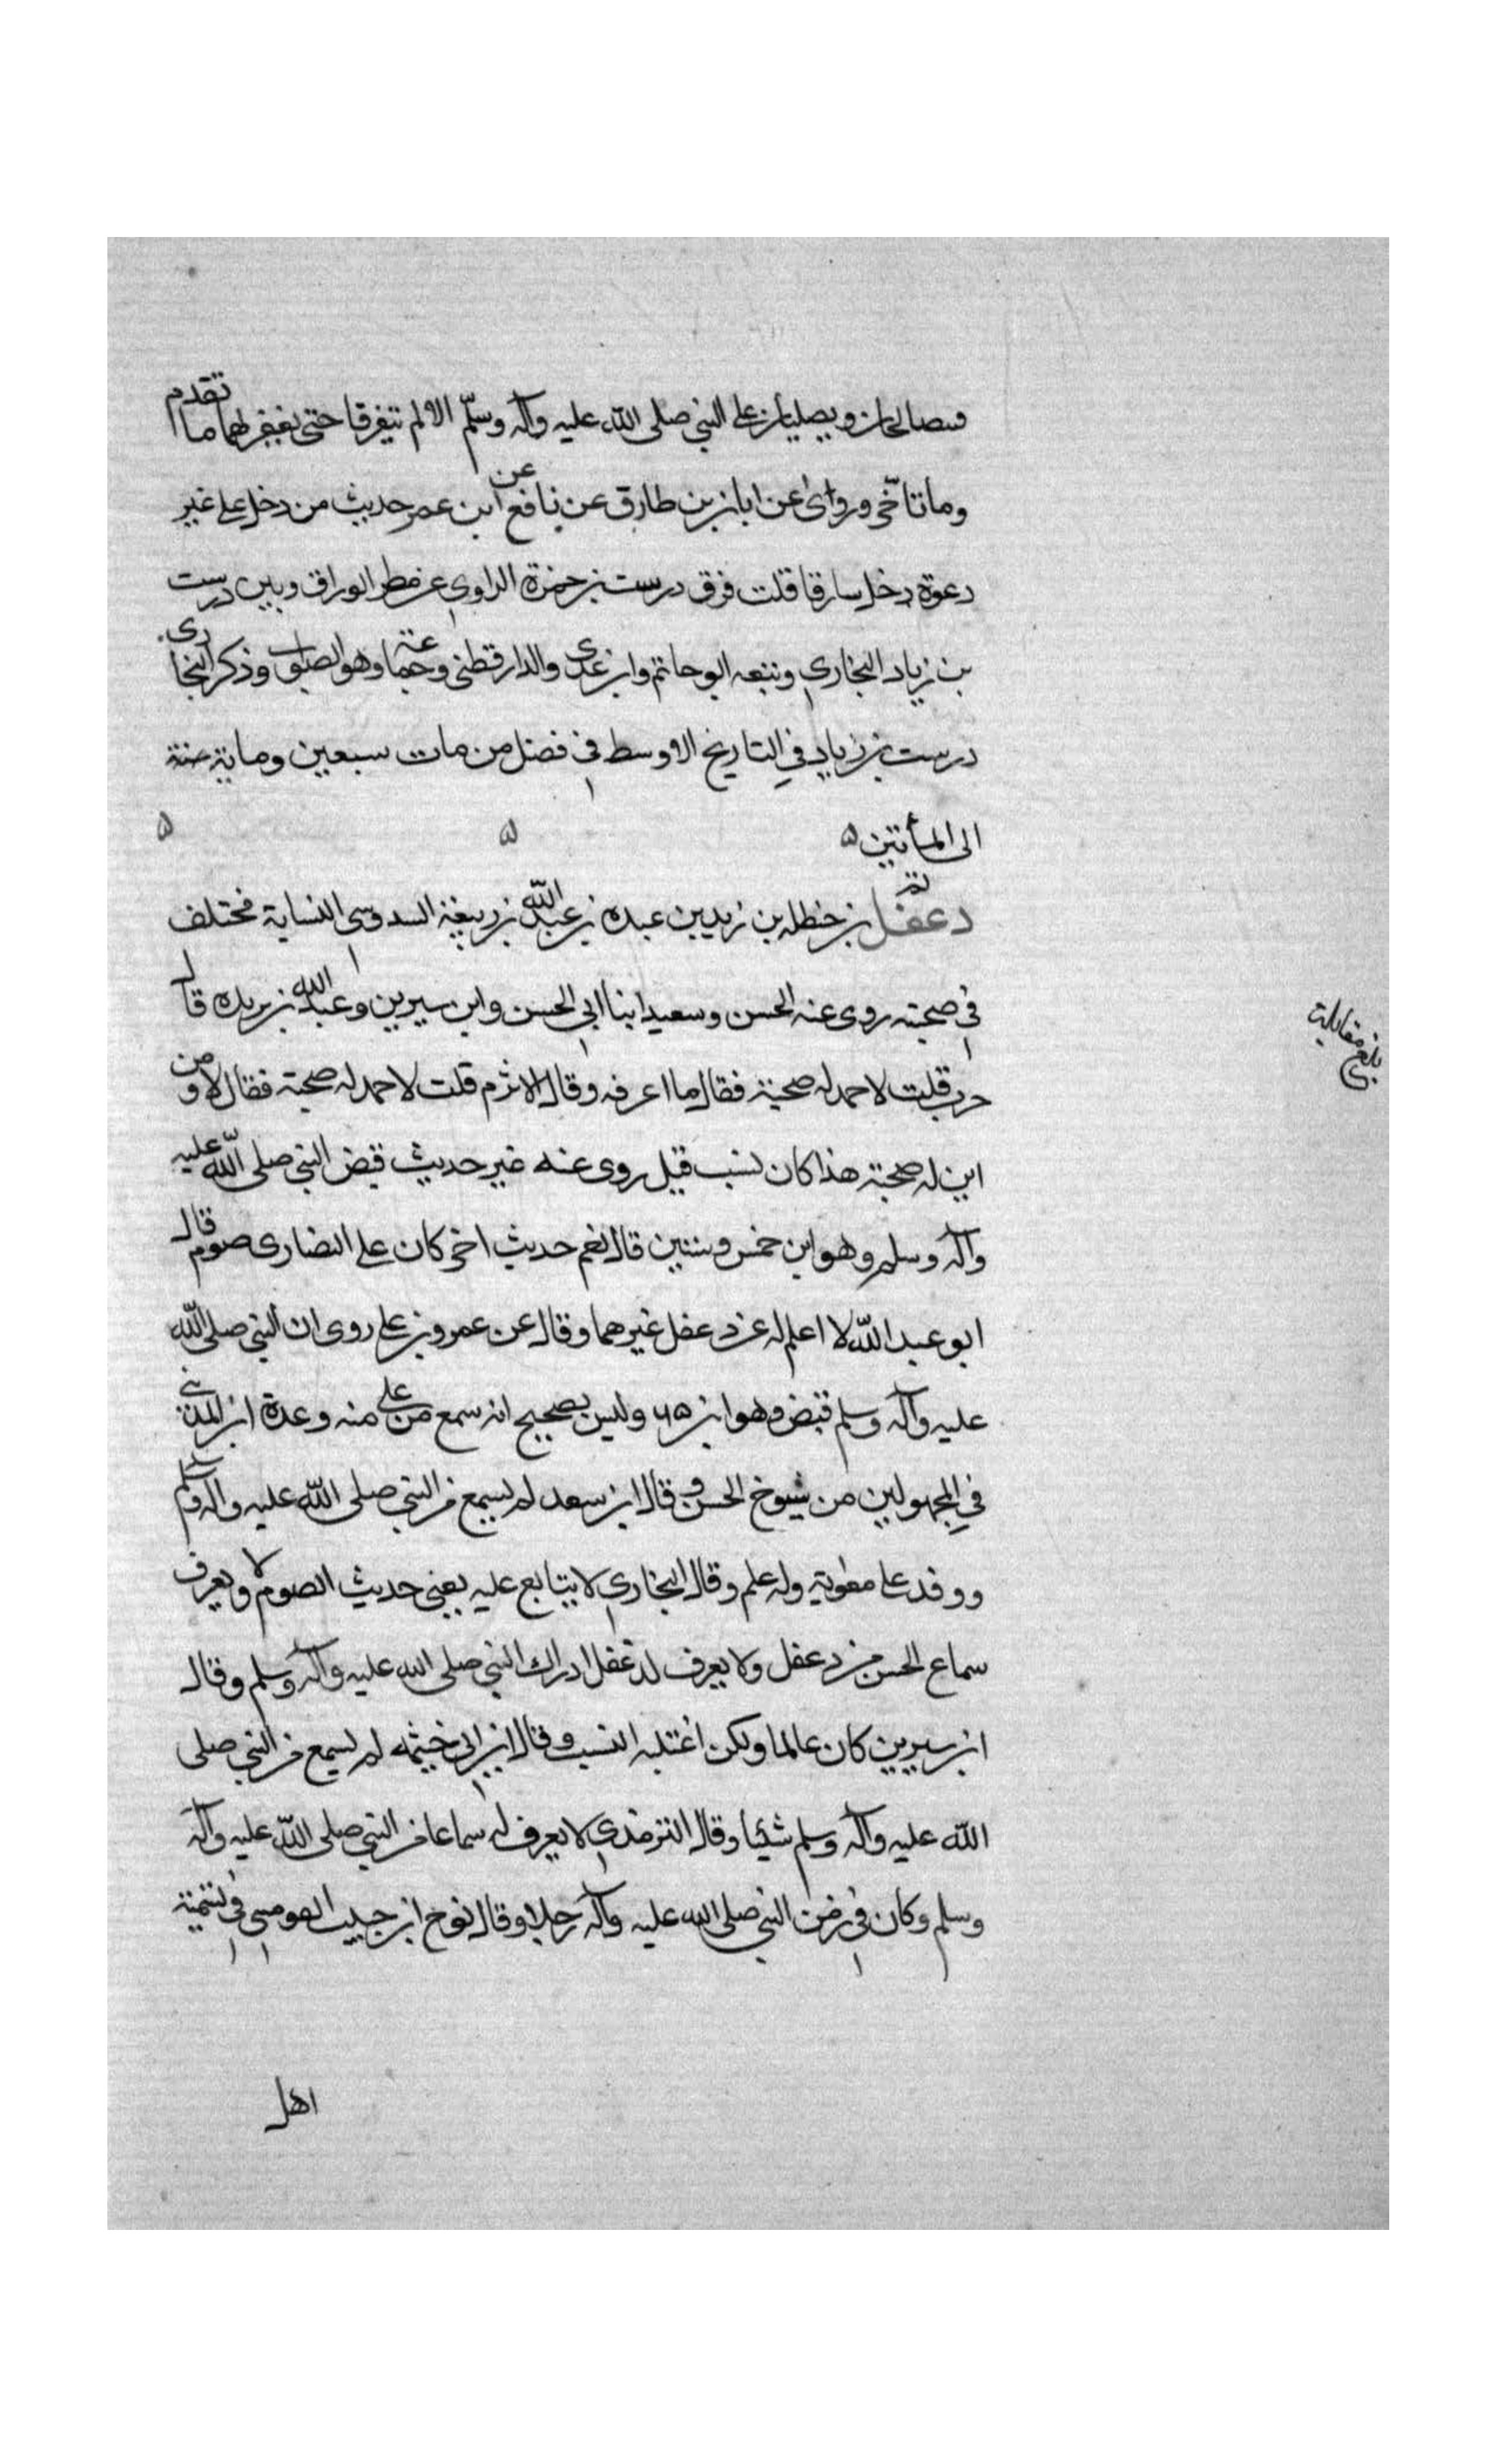 فيصالحان ويصليان على النبي صلى الله عليه وآله وسلّم الا لم يتفرقا حتى يغفر لهما ما تقدم
وما تاخّر وروى عن ابان بن طارق عن نافع عن ابن عمر حديث من دخل على غير
دعوة دخل سارقا قلت فرق درست بن حمزة الراوى عن مطر الوراق وبين درست
بن زياد البخارى وتبعه ابو حاتم وابن عدى والدارقطنى وجماعة وهو الصواب وذكر البخارى
درست بن زياد فى التاريخ الاوسط فى فضل من مات سبعين ومایة سنة
الى المأتين ۵ ۵ ۵
دغفل بن حنظله بن زيد بن عبده بن عبد الله بن ربيعة السدوسى النسابة مختلف
فى صحبته روى عنه الحسن وسعيد ابنا ابى الحسن وابن سيرين وعبد الله بن بريده قال
حرب قلت لاحمد له صحبة فقال ما اعرفه وقال الاثرم قلت لاحمد له صحبة فقال لا ومن
اين له صحبة هذا كان نسب قيل روى عنه غير حديث قبض النبى صلى الله عليه
وآله وسلم وهو ابن خمس وستين قال نعم حديث اخر كان على النصارى صوم قال
ابو عبد الله لا اعلم له عن دغفل غيرهما وقال عن عمرو بن على روى ان النبى صلى الله
عليه وآله وسلم قبض وهو ابن ۶۵ وليس بصحيح انه سمع من على منه وعدة ابن المدينى
فى المجهولين من شيوخ الحسن وقال ابن سعد لم يسمع من النبى صلى الله عليه وآله وسلم
ووفد على معوية وله علم وقال البخارى لا يتابع عليه يعنى حديث الصوم ولا يعرف
سماع الحسن من دغفل ولا يعرف لدغفل ادراك النبى صلى الله عليه وآله وسلم وقال
ابن سيرين كان عالما ولكن اغتلبه النسب وقال ابن ابى خيثمه لم يسمع من النبى صلى
الله عليه وآله وسلم شيئا وقال الترمذى لا يعرف له سماعا من النبى صلى الله عليه وآله
وسلم وكان فى زمن النبى صلى الله عليه وآله رجلا وقال نوح ابن حبيب القومسى فى تسمية
اهل
بلغ مقابلة